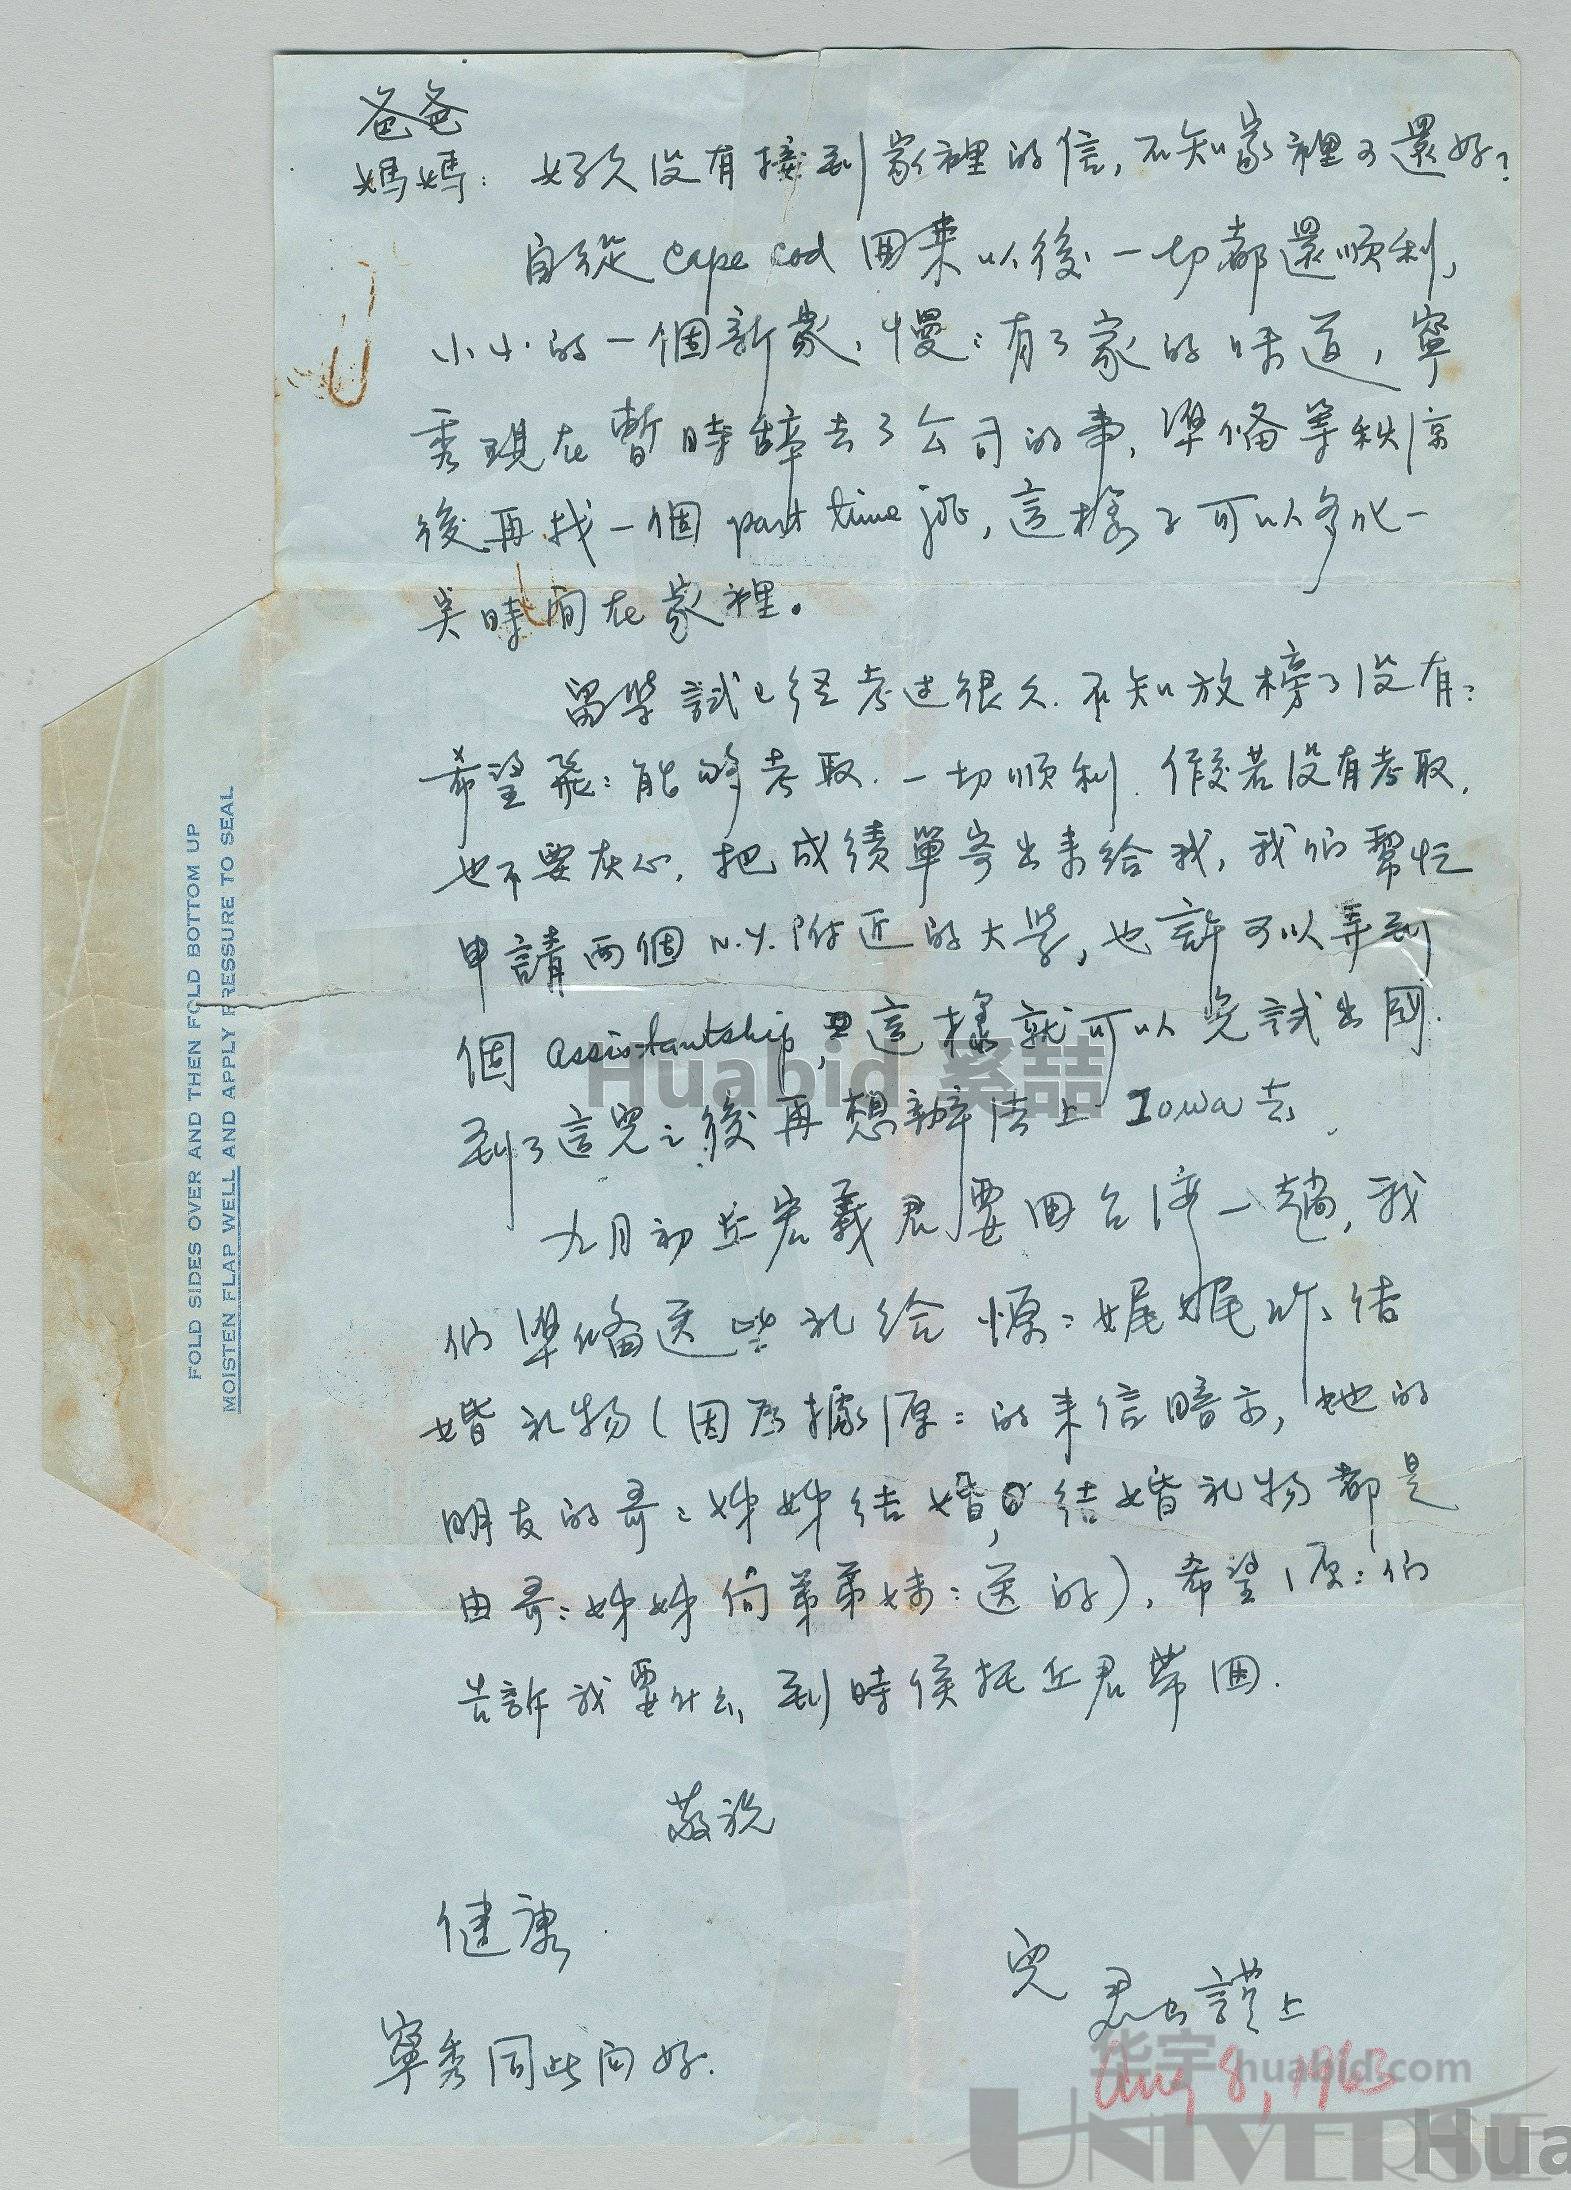 爸爸
媽媽：好久没有接到家裡的信，不知家裡可還好？
自從 Cape Cod 回来以後一切都還順利，
小小的一個新家，慢：有了家的味道，寧
秀現在暫時辞去了公司的事，準備等秋涼
後再找一個 part time job，這樣子可以多化一
奌時间在家裡。
留学試已经考过很久.不知放榜了没有：
希望飛：能够考取.一切順利.假若没有考取，
也不要灰心，把成績單寄出来给我，我们幫忙
申請两個 N.Y. 附近的大学，也許可以弄到
個 assistantship，這樣就可以免試出國.
到了這兒之後再想辦法上 Iowa 去.
九月初丘宏義君要回台湾一趟，我
们準備送些礼给 愿：娓娓的结
婚礼物（因为據愿：的来信暗示，她的
朋友的哥：姊姊结婚，结婚礼物都是
由哥：姊姊向弟弟妹：送的），希望愿：们
告訴我要什么，到時候托丘君帶回.
敬祝
健康.
兒 君 謹上
寧秀同此问好.
Aug 8, 1963
FOLD SIDES OVER AND THEN FOLD BOTTOM UP
MOISTEN FLAP WELL AND APPLY PRESSURE TO SEAL
Huabid 綮喆
华宇 huabid.com
UNIVERSE
Hua